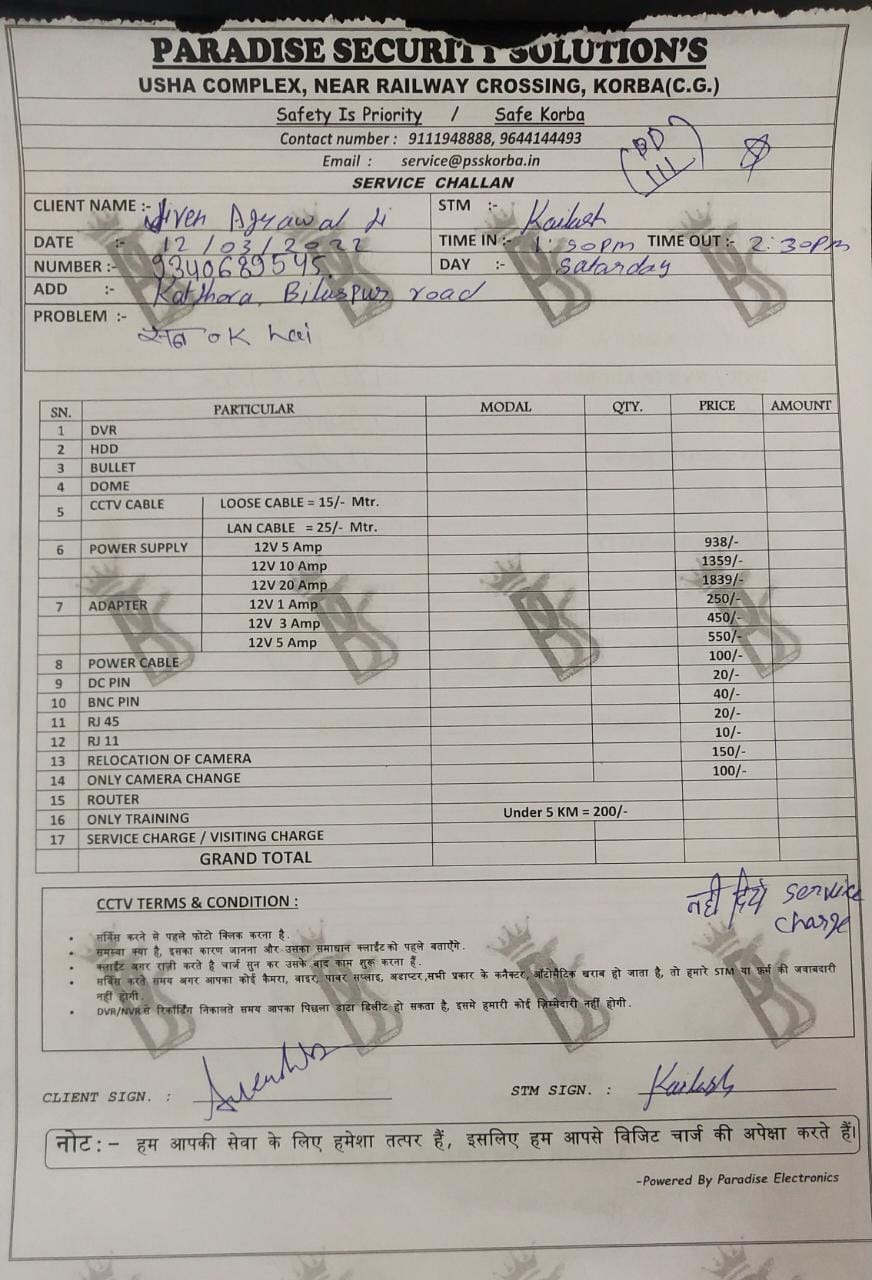 PARADISE SECURITY SOLUTION'S
USHA COMPLEX, NEAR RAILWAY CROSSING, KORBA(C.G.)
Safety Is Priority / Safe Korba
Contact number : 9111948888, 9644144493
Email : service@psskorba.in
SERVICE CHALLAN
CLIENT NAME :- Agrawal Ji STM :- Kailash
DATE :- 12/03/2022 TIME IN :- 1:30pm TIME OUT :- 2:30pm
NUMBER :- 9340689545. DAY :- Satarday
ADD :- Katghora, Bilaspur road
PROBLEM :-
सब OK hai
SN. PARTICULAR MODAL QTY. PRICE AMOUNT
1 DVR
2 HDD
3 BULLET
4 DOME
5 CCTV CABLE LOOSE CABLE = 15/- Mtr.
LAN CABLE = 25/- Mtr.
6 POWER SUPPLY 12V 5 Amp 938/-
12V 10 Amp 1359/-
12V 20 Amp 1839/-
7 ADAPTER 12V 1 Amp 250/-
12V 3 Amp 450/-
12V 5 Amp 550/-
8 POWER CABLE 100/-
9 DC PIN 20/-
10 BNC PIN 40/-
11 RJ 45 20/-
12 RJ 11 10/-
13 RELOCATION OF CAMERA 150/-
14 ONLY CAMERA CHANGE 100/-
15 ROUTER
16 ONLY TRAINING Under 5 KM = 200/-
17 SERVICE CHARGE / VISITING CHARGE
GRAND TOTAL
नही दिये service
charge
CCTV TERMS & CONDITION :
• सर्विस करने से पहले फोटो क्लिक करना है .
• समस्या क्या है, इसका कारण जानना और उसका समाधान क्लाईंट को पहले बताऐंगे.
• क्लाईंट अगर राज़ी करते है चार्ज सुन कर उसके बाद काम शुरू करना हैं .
• सर्विस करते समय अगर आपका कोई कैमरा, वाइर, पावर सप्लाइ, अडाप्टर,सभी प्रकार के कनैक्टर, ऑटोमैटिक खराब हो जाता है, तो हमारे STM या फ़र्म की जवाबदारी
नहीं होगी .
• DVR/NVR से रिकॉर्डिंग निकालते समय आपका पिछला डाटा डिलीट हो सकता है, इसमे हमारी कोई ज़िम्मेदारी नहीं होगी .
CLIENT SIGN. : STM SIGN. : Kailash
नोट:- हम आपकी सेवा के लिए हमेशा तत्पर हैं, इसलिए हम आपसे विजिट चार्ज की अपेक्षा करते हैं।
-Powered By Paradise Electronics